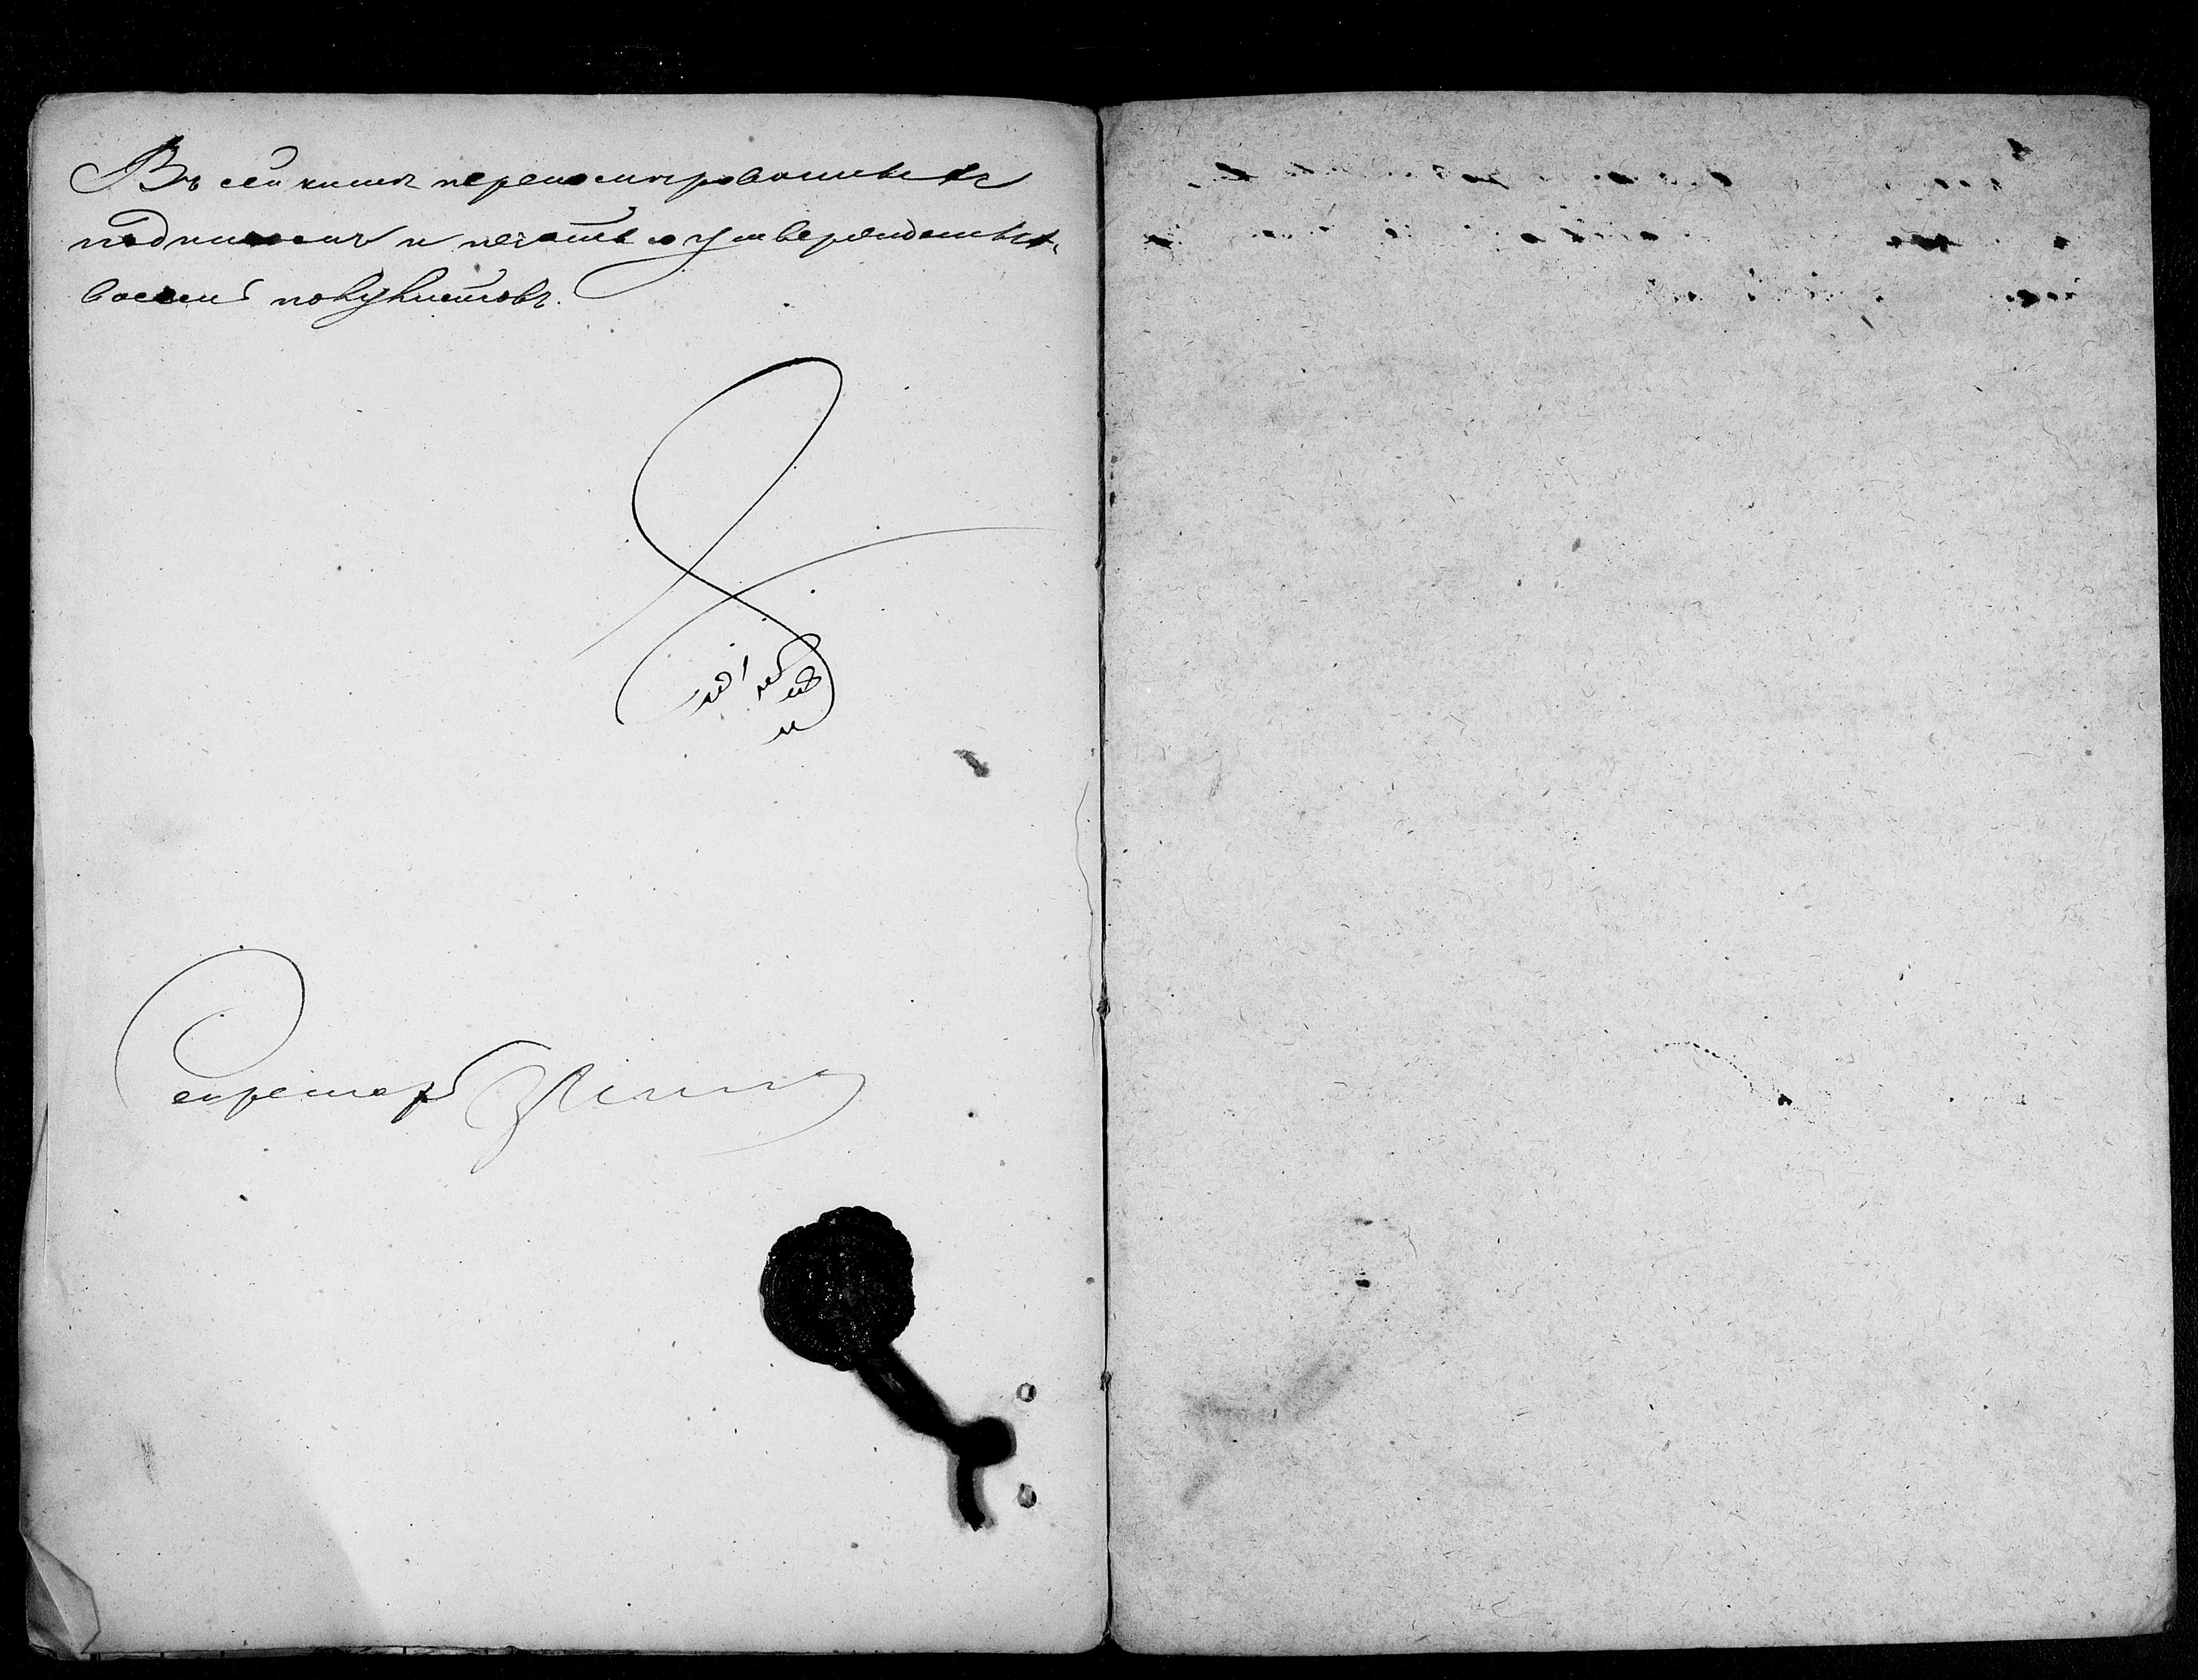 Въ сей книгѣ перенумерованныхъ
подписомъ и печатью утвержденныхъ
восемь полулистовъ.
Секретарь